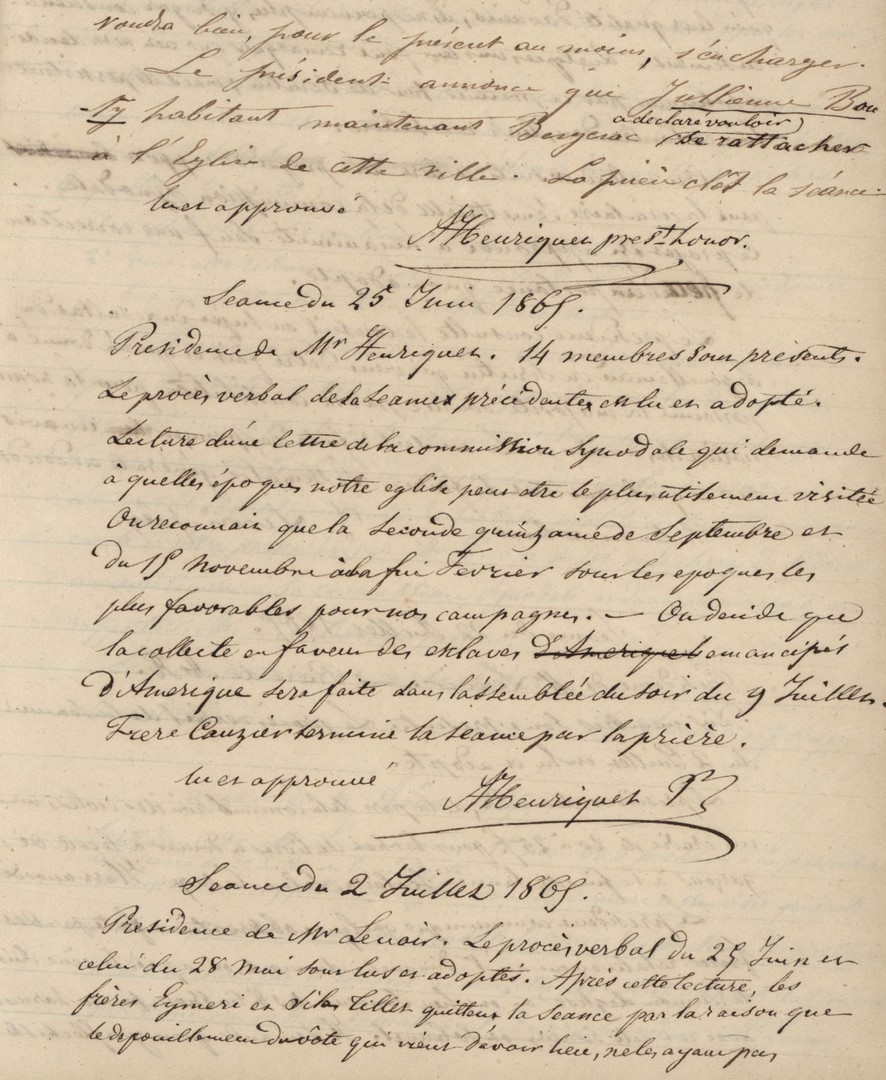 voudra bien, pour le présent au moins, s'en charger.
Le président annonce que Jullienne Bou
-ty habitant maintenant Bergerac a déclaré vouloir se rattacher
à l'Eglise de cette ville. La prière clôt la séance.
lu et approuvé
AHenriquet prest honor.
Seance du 25 Juin 1865.
Presidence de Mr Henriquet. 14 membres sont présents.
Le procès verbal de la seance précédente est lu et adopté.
Lecture d'une lettre de la commission Synodale qui demande
à quelles époques notre eglise peut être le plus utilement visitée
On reconnait que la seconde quinzaine de Septembre et
du 15 Novembre à la fin Fevrier sont les epoques les
plus favorables pour nos campagnes. — On decide que
la collecte en faveur des esclaves d'Amerique emancipés
d'Amerique sera faite dans l'assemblée du soir du 9 Juillet.
Frere Cauzier termine la seance par la prière.
lu et approuvé
AHenriquet Pr
Seance du 2 Juillet 1865.
Presidence de Mr Lenoir. Le procès verbal du 25 Juin et
celui du 28 mai sont lus et adoptés. Après cette lecture, les
frères Eymeri et Silas Tillet quittent la seance par la raison que
le depouillement du vôte qui vient d'avoir lieu, ne les ayant pas